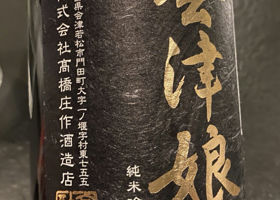 会津娘
純米吟
県会津若松市門田町大字一ノ堰字村東七五五
式会社髙橋庄作酒造店